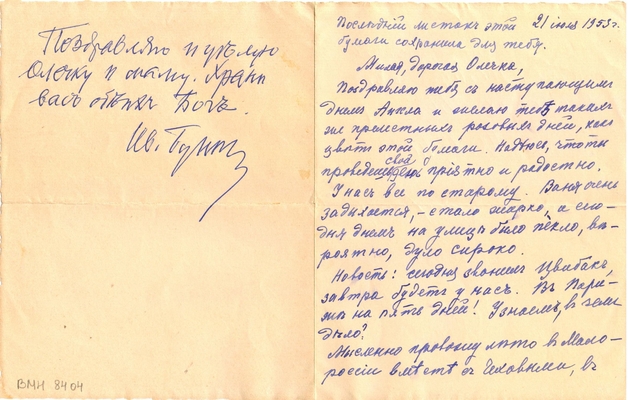 Поздравляю и цѣлую
Олечку и маму. Храни
васъ обѣихъ Богъ.
Ив. Бунин
ВМН 8404
Послѣдній листокъ этой
бумаги сохранила для тебя.
21 іюля 1953 г.
Милая, дорогая Олечка,
Поздравляю тебя съ наступающимъ
днемъ Ангела и желаю тебѣ такихъ
же прелестныхъ розовыхъ дней, какъ
цвѣтъ этой бумаги. Надѣюсь, что ты
проведешь свой день пріятно и радостно.
У насъ все по старому. Ваня очень
задыхается, – стало жарко, а сего-
дня днемъ на улицѣ было пекло, вѣ-
роятно, дуло сироко.
Новость: сегодня звонилъ Цвибакъ,
завтра будетъ у насъ. Въ Пари-
жѣ на пять дней! Узнаемъ, въ чемъ
дѣло?
Мысленно провожу лѣто в Мало-
россіи вмѣстѣ съ Чеховыми, въ